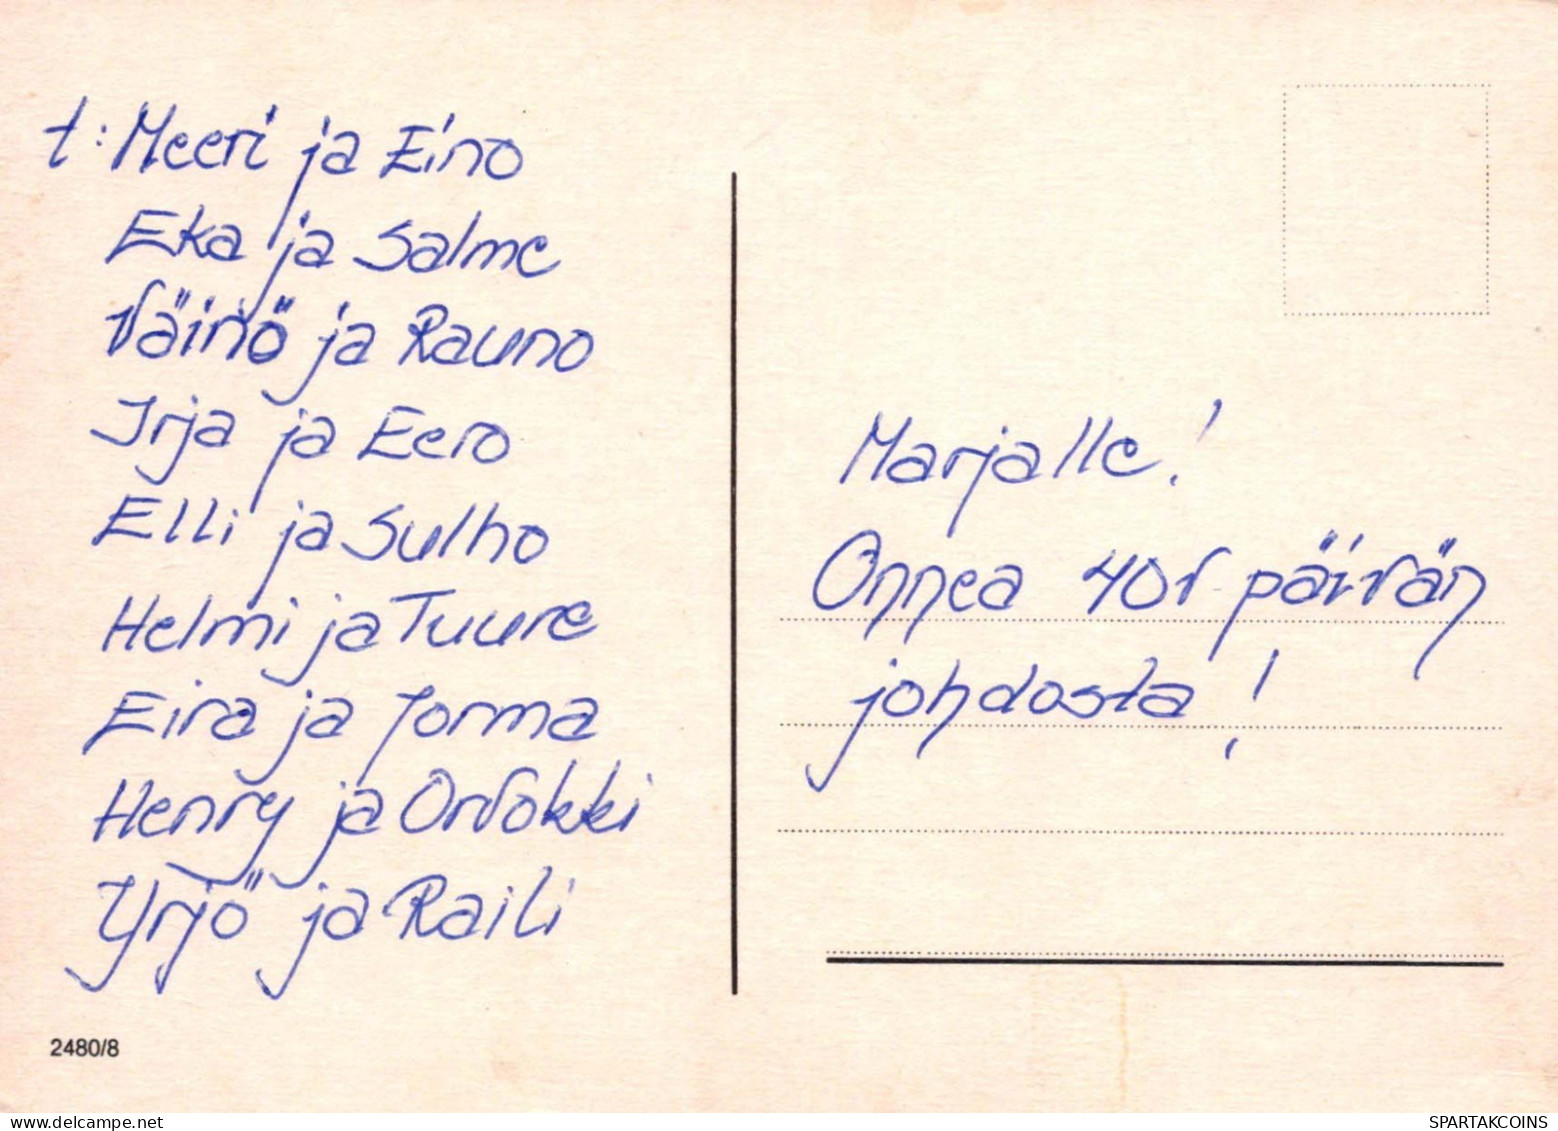 t: Meeri ja Eino
Eka ja Salme
Väinö ja Rauno
Irja ja Eero
Elli ja Sulho
Helmi ja Tuure
Eira ja Jorma
Henry ja Orvokki
Yrjö ja Raili
2480/8
Marjalle!
Onnea 40v-päivän
johdosta!
delcampe.net
SPARTAKCOINS